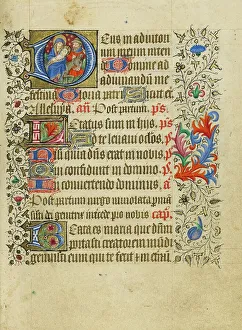 Deus in adiutori
um meum inten
de Domine ad
adiuuandum me
festina Gloria patri Sicut erat
Alleluya. añ Post partum. p̃s
Letatus sum in hiis. p̃s
Ad te leuaui oculos. p̃s
Nisi quia dñs erat in nobis
Qui confidunt in domino. p̃s
In conuertendo dominus. a
Post partum virgo inuiolata perman
sisti dei genitrix intcede pro nobis cap.
Beata es maria que dñm
portasti creatorem mũdi
genuisti eum qui te fecit et in